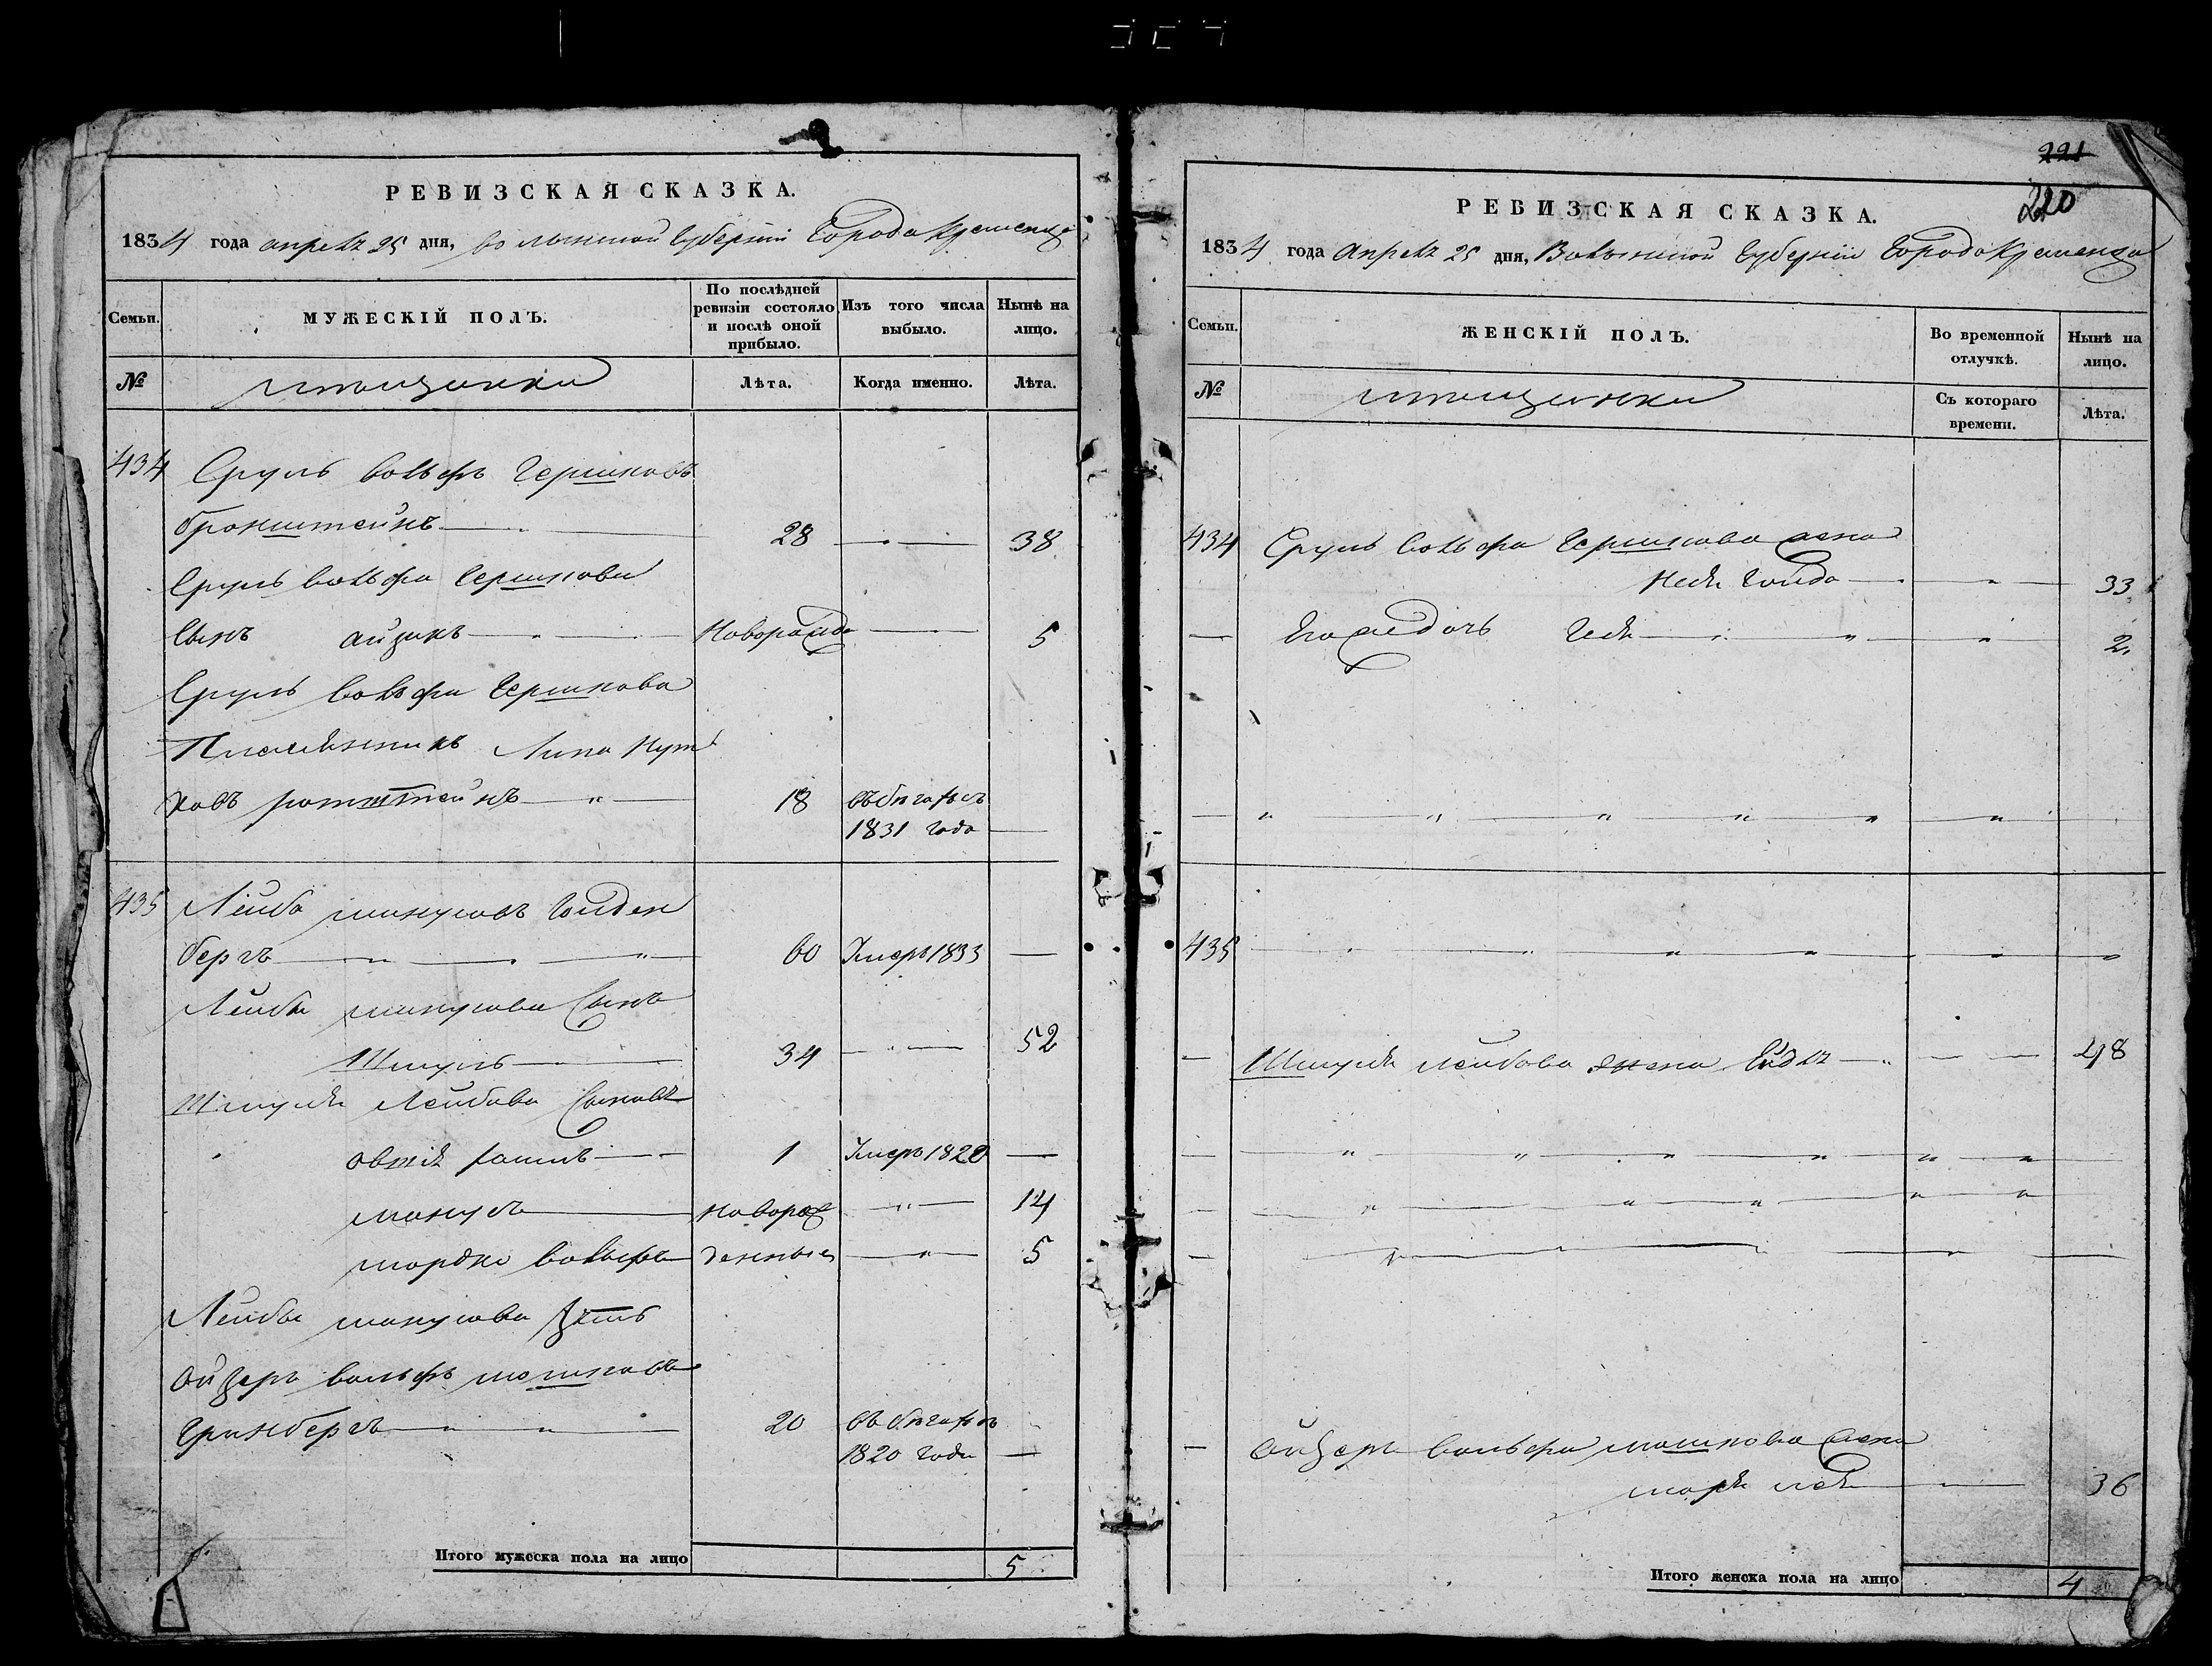 РЕВИЗСКАЯ СКАЗКА.
1834 года апреля 25 дня, Волынской Губернии Города Кременца
Семьи.
МУЖЕСКІЙ ПОЛЪ.
По послѣдней ревизіи состояло и послѣ оной прибыло.
Изъ того числа выбыло.
Нынѣ на лицо.
№
Лѣта.
Когда именно.
Лѣта.
434 Сруль Вольфъ Гершковъ
бронштейнъ 28 — 38
Сруль Вольфа Гершкова
Сынъ айзикъ Новорожде — 5
Сруль Вольфа Гершкова
Племянникъ Липа
ротштейнъ 18 въ бѣгахъ съ
1831 года —
435 Лейба манусовъ Гольден
бергъ 60 Умеръ 1833 —
Лейбы манусова Сынъ
Шмуль 34 — 52
Шмуля Лейбова Сыновья
1 Умеръ 1820 —
манусъ новорож — 14
мордко вольфъ денные — 5
Лейбы манусова зять
ойзеръ вольфъ мошковъ
Гринбергъ 20 въ бѣгахъ съ
1820 года —
Итого мужеска пола на лицо 5
221
220
РЕВИЗСКАЯ СКАЗКА.
1834 года Апреля 25 дня, Волынской Губерніи Города Кременца
Семьи.
ЖЕНСКІЙ ПОЛЪ.
Во временной отлучкѣ.
Нынѣ на лицо.
№
Съ котораго времени.
Лѣта.
434 Сруль Вольфа Гершкова жена
Нехя Гольда — 33
— Его же дочь Геня — 2
435
— Шмуля Лейбова жена Ейдля — 48
— Ойзера вольфа мошкова жена
маря лея — 36
Итого женска пола на лицо 4